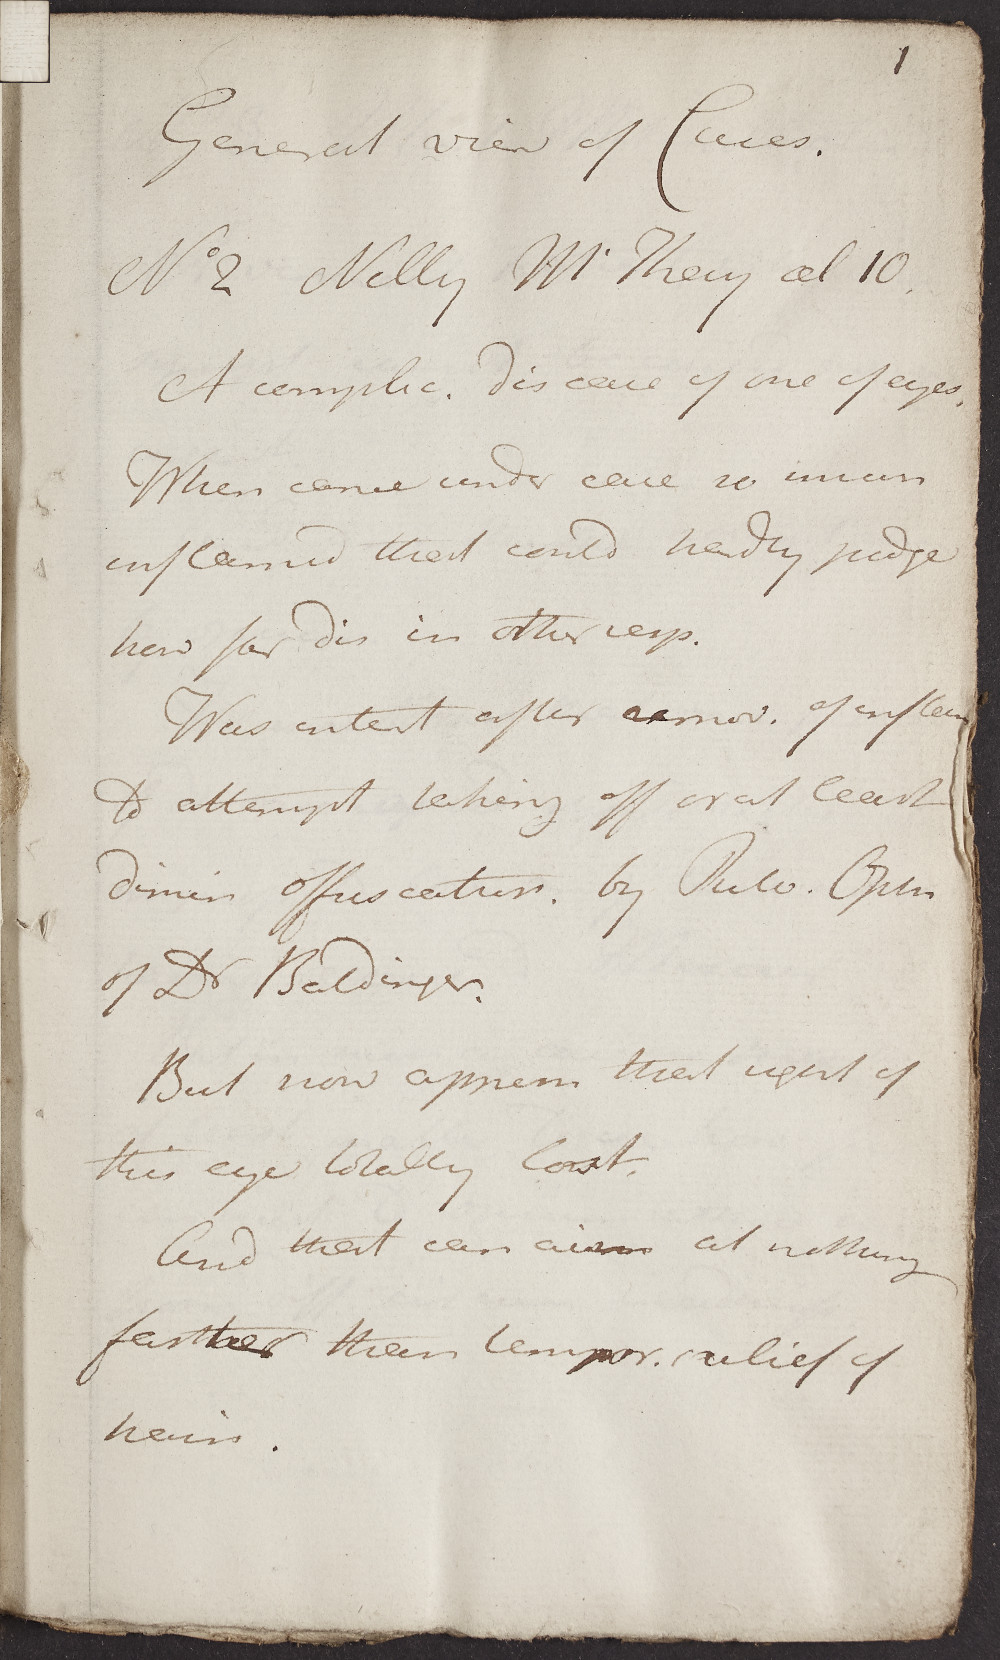 1
General view of Cases.
No 2 Nelly Mc Theny aet 10.
A complic. disease of one of eyes.
When came under care so much
inflamed that could hardly judge
how far dis in other resp.
Was intent after remov. of inflam
to attempt taking off or at least
dimin offuscation. by Pulv. Opth
of Dr Baldinger.
But now appears that sight of
this eye totally lost.
And that can aim at nothing
farther than tempor. relief of
pain.